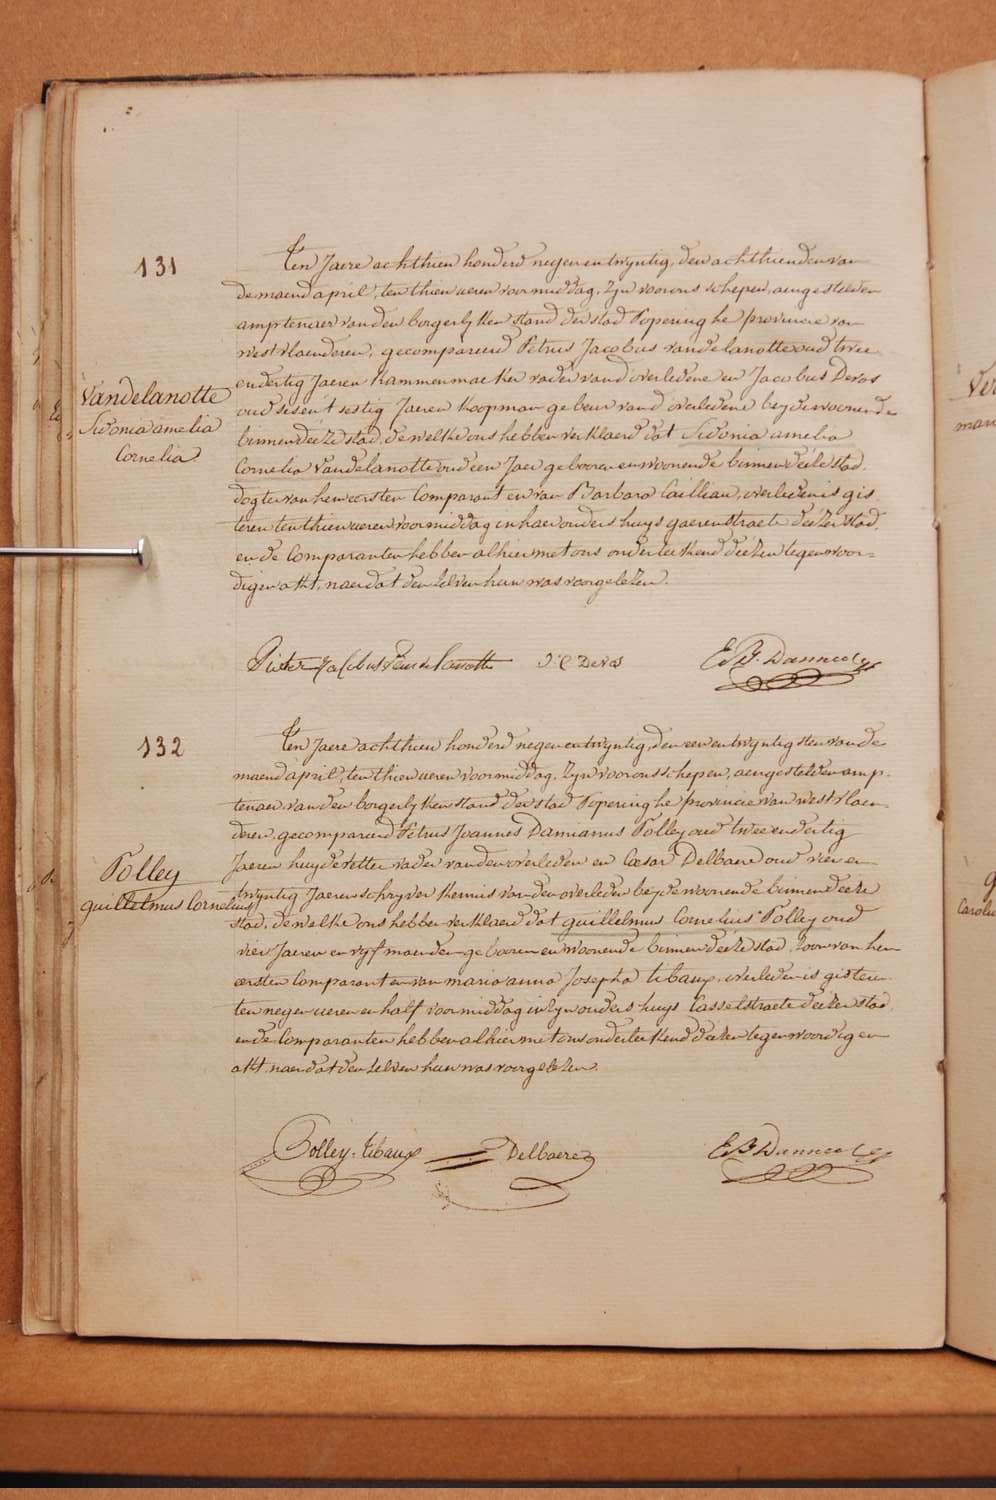 131
Ten Jaere achthien honderd negen en twyntig, den achthienden van
de maend april, ten thien ueren voormiddag, zyn voor ons schepen, aengestelden
amptenaer van den borgerlyken stand der stad Poperinghe provincie van
westvlaenderen, gecompareerd Petrus Jacobus vandelanotte oud twee
en dertig Jaeren kammenmaeker vader van d'overledene en Jacobus Devos
oud ses en t sestig Jaeren koopman gebeur van d'overledene beyde woonende
binnen deéze stad, de welke ons hebben verklaerd dat Sidonia amelia
Cornelia Vandelanotte oud een Jaer geboren en woonende binnen deéze stad,
dogter van hem eersten Comparant en van Barbara Cailliau, overleden is gis
teren ten thien ueren voormiddag in haer ouders huys gaerenstraete deézer stad,
en de Comparanten hebben alhier met ons onderteekend deézen tegenwoor=
digen akt, naer dat den zelven hun was voorgelezen.
Vandelanotte
Sidonia amelia
Cornelia
Pieter Jacobus Van de lanotte J: C Devos E B: Dannoel
132
Ten Jaere achthien honderd negen en twyntig, den een en twyntigsten van de
maend april, ten thien ueren voormiddag, zyn voor ons schepen, aengestelden amp-
tenaer van den borgerlyken stand der stad Poperinghe provincie van westvlaen
deren, gecompareerd Petrus Joannes Damianus Polley oud twee en dertig
Jaeren huydevetter vader van den overleden en Cæsar Delbaere oud vier en
twyntig Jaeren schryver kennis van den overleden beyde woonende binnen deéze
stad, de welke ons hebben verklaerd dat guillelmus Cornelius Polley oud
vier Jaeren en vyf maenden geboren en woonende binnen deéze stad, zoon van hem
eersten Comparant en van maria anna Josepha tibaux, overleden is gisteren
ten negen ueren en half voormiddag in zyn ouders huys Casselstraete deézer stad,
en de Comparanten hebben alhier met ons onderteekend deézen tegenwoordigen
akt, naer dat den zelven hun was voorgelezen.
Polley
guillelmus Cornelius
Polley-tibaux Delbaere E B Dannoel
Carolu